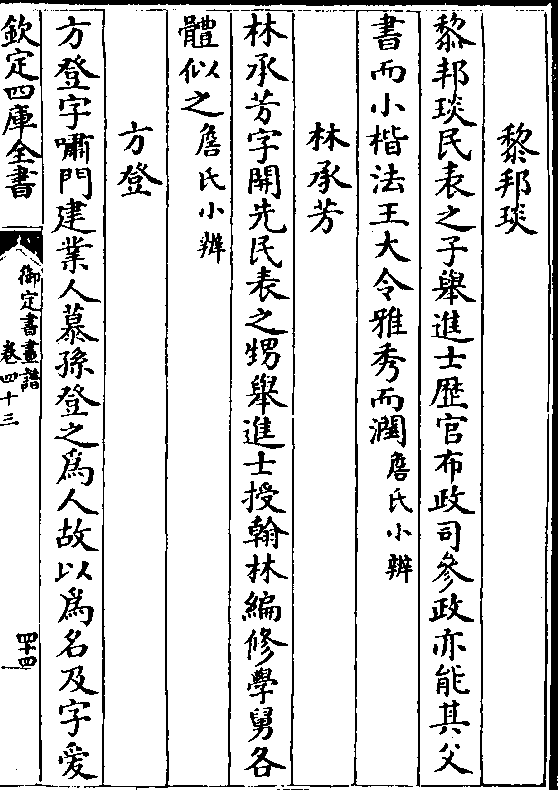 黎邦琰
黎邦琰民表之子舉進士歴官布政司參政亦能其父
書而小楷法王大令雅秀而潤詹氏小辨
林承芳
林承芳字開先民表之甥舉進士授翰林編修學舅各
體似之詹氏小辨
方登
方登字嘯門建業人慕孫登之為人故以為名及字爰
欽定四庫全書
御定書畫譜
卷四十三
四十四